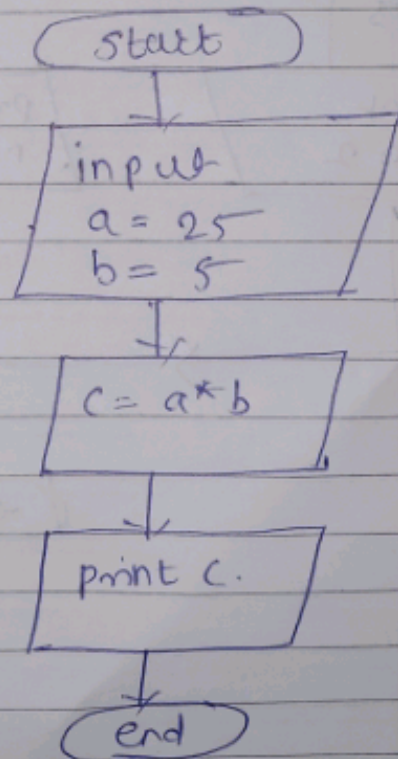 start
input
a = 25
b = 5
c = a*b
print c.
end